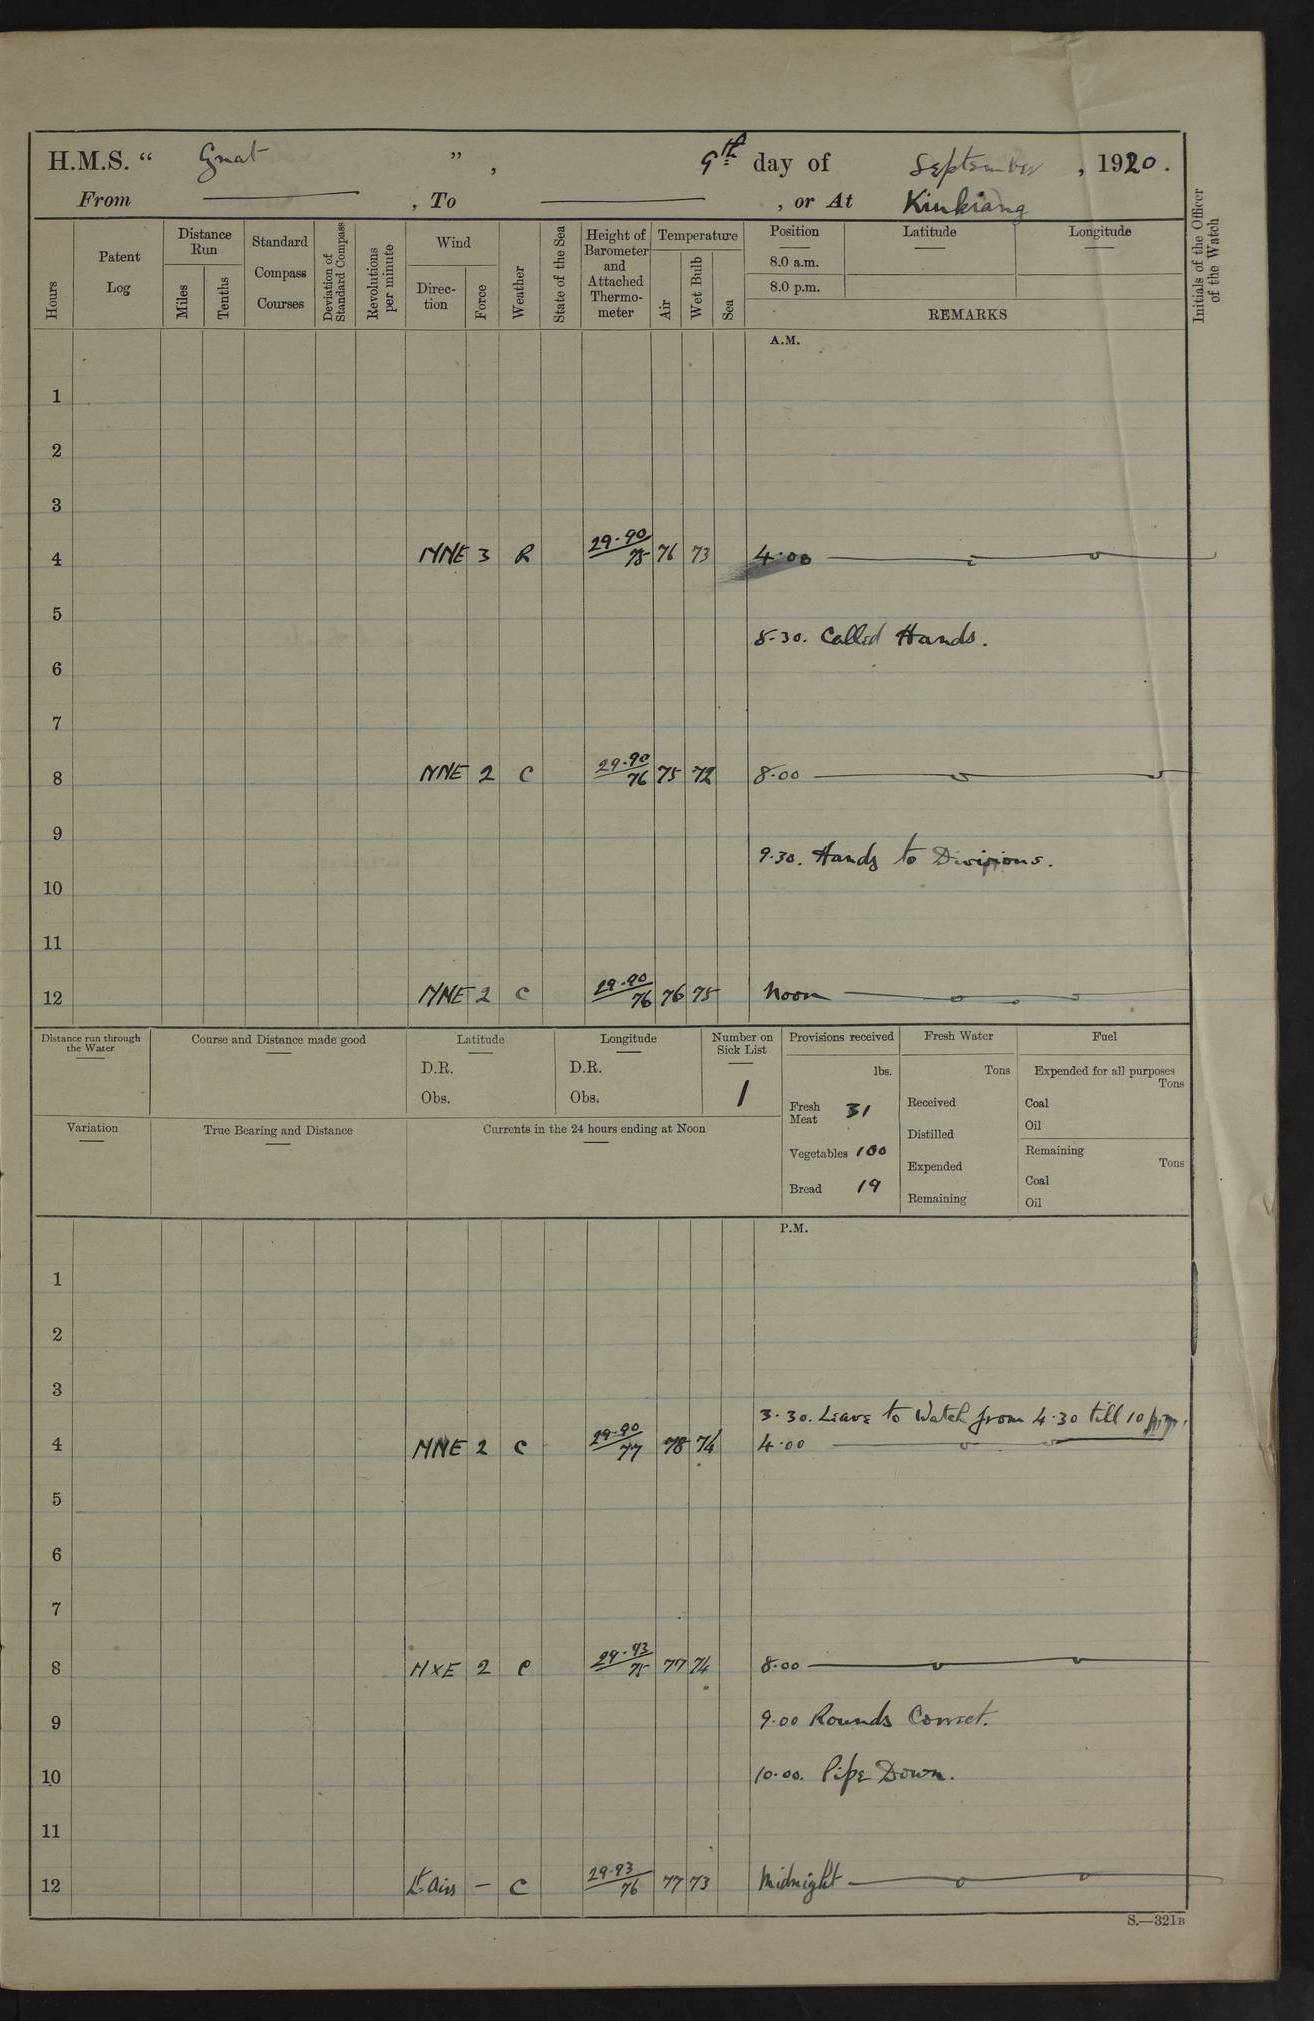 H.M.S. “ Gnat ” , 9th day of September , 1920.
From ——— , To ——— , or At Kiukiang
Hours
Patent Log
Distance Run
Miles
Tenths
Standard Compass Courses
Deviation of Standard Compass
Revolutions per minute
Wind
Direc- tion
Force
Weather
State of the Sea
Height of Barometer and Attached Thermo- meter
Temperature
Air
Wet Bulb
Sea
Position
8.0 a.m.
8.0 p.m.
Latitude
Longitude
REMARKS
Initials of the Officer of the Watch
A.M.
1
2
3
4 NNE 3 R 29.90 78 76 73 4.00
5
5.30. Called Hands.
6
7
8 NNE 2 C 29.90 76 75 72 8.00
9
9.30. Hands to Divisions.
10
11
12 NNE 2 C 29.90 76 76 75 Noon
Distance run through the Water
Course and Distance made good
Latitude
D.R.
Obs.
Longitude
D.R.
Obs.
Number on Sick List
1
Provisions received
lbs.
Fresh Meat 31
Vegetables 100
Bread 19
Fresh Water
Tons
Received
Distilled
Expended
Remaining
Fuel
Expended for all purposes
Tons
Coal
Oil
Remaining
Tons
Coal
Oil
Variation
True Bearing and Distance
Currents in the 24 hours ending at Noon
P.M.
1
2
3
3.30. Leave to Watch from 4.30 till 10 p.m.
4 NNE 2 C 29.90 77 78 74 4.00
5
6
7
8 NxE 2 C 29.93 75 77 74 8.00
9 9.00 Rounds Correct.
10 10.00. Pipe Down.
11
12 Lt Airs – C 29.93 76 77 73 Midnight
S.—321B